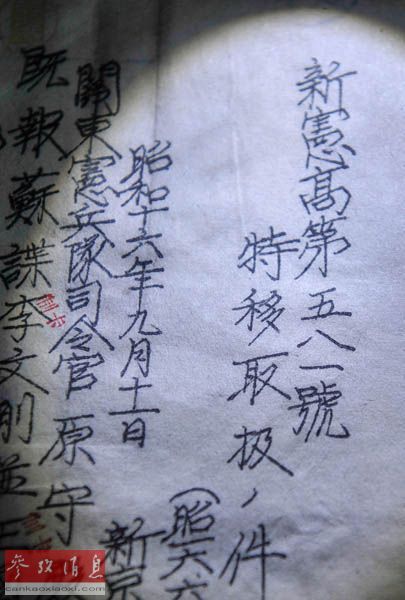 新憲高第五八一號
特移取扱ノ件
(昭六六
昭和十六年九月十一日
新京
關東憲兵隊司令官 原守
既報蘇諜李文剛並王
参考消息
cankaoxiaoxi.com